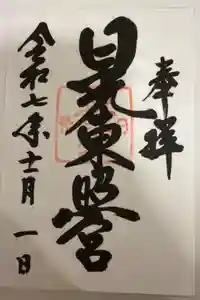 奉拝
日光東照宮
令和七年十二月一日